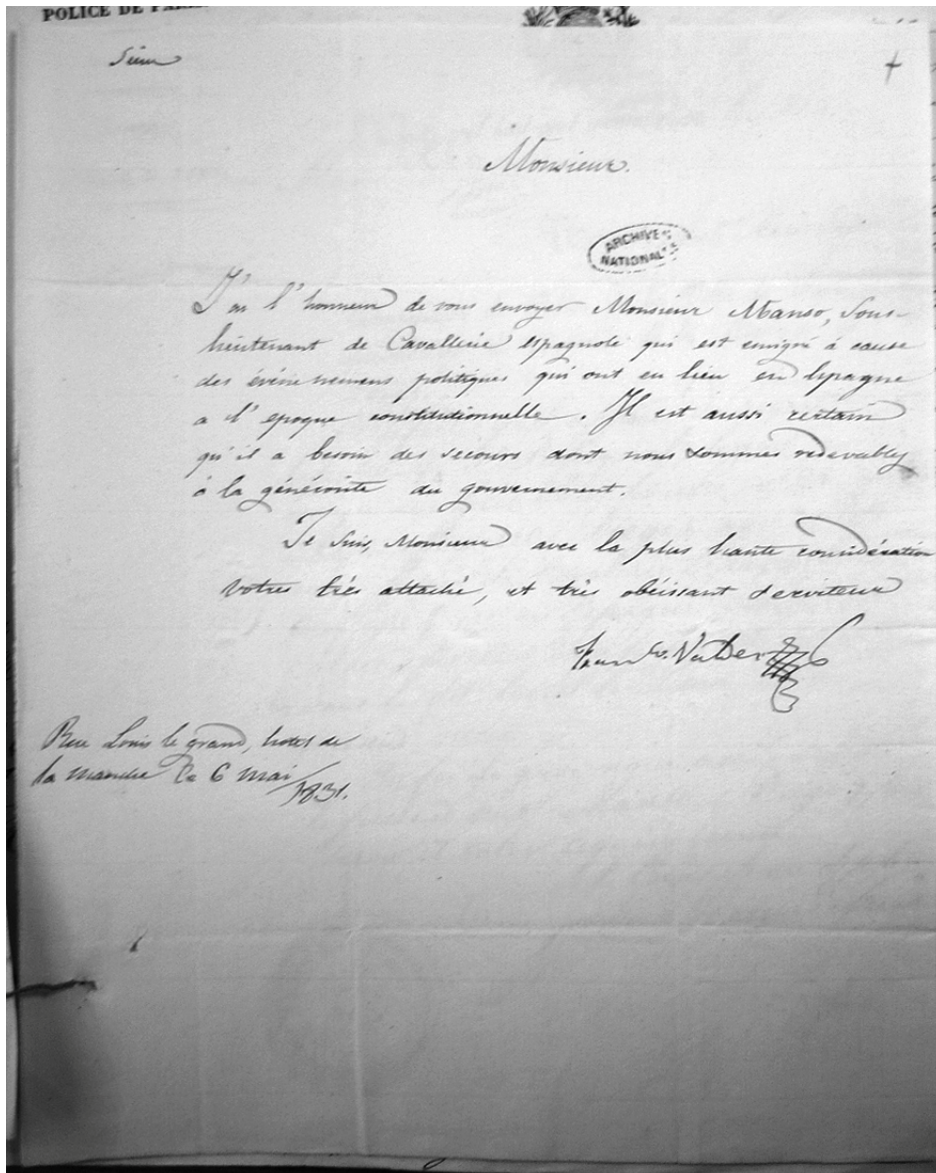 POLICE DE
Monsieur.
ARCHIVES
NATIONALES
J'ai l'honneur de vous envoyer Monsieur Manso, Sous-
lieutenant de Cavallerie espagnole qui est emigré à cause
des événemens politiques qui ont eu lieu en Espagne
a l'epoque constitutionnelle. Il est aussi certain
qu'il a besoin des secours dont nous sommes redevables
à la générosité du gouvernement.
Je suis, Monsieur avec la plus haute considération
votres très attaché, et très obéissant serviteur
Rue Louis le grand, hotel de
la manche Ce 6 mai
1831.